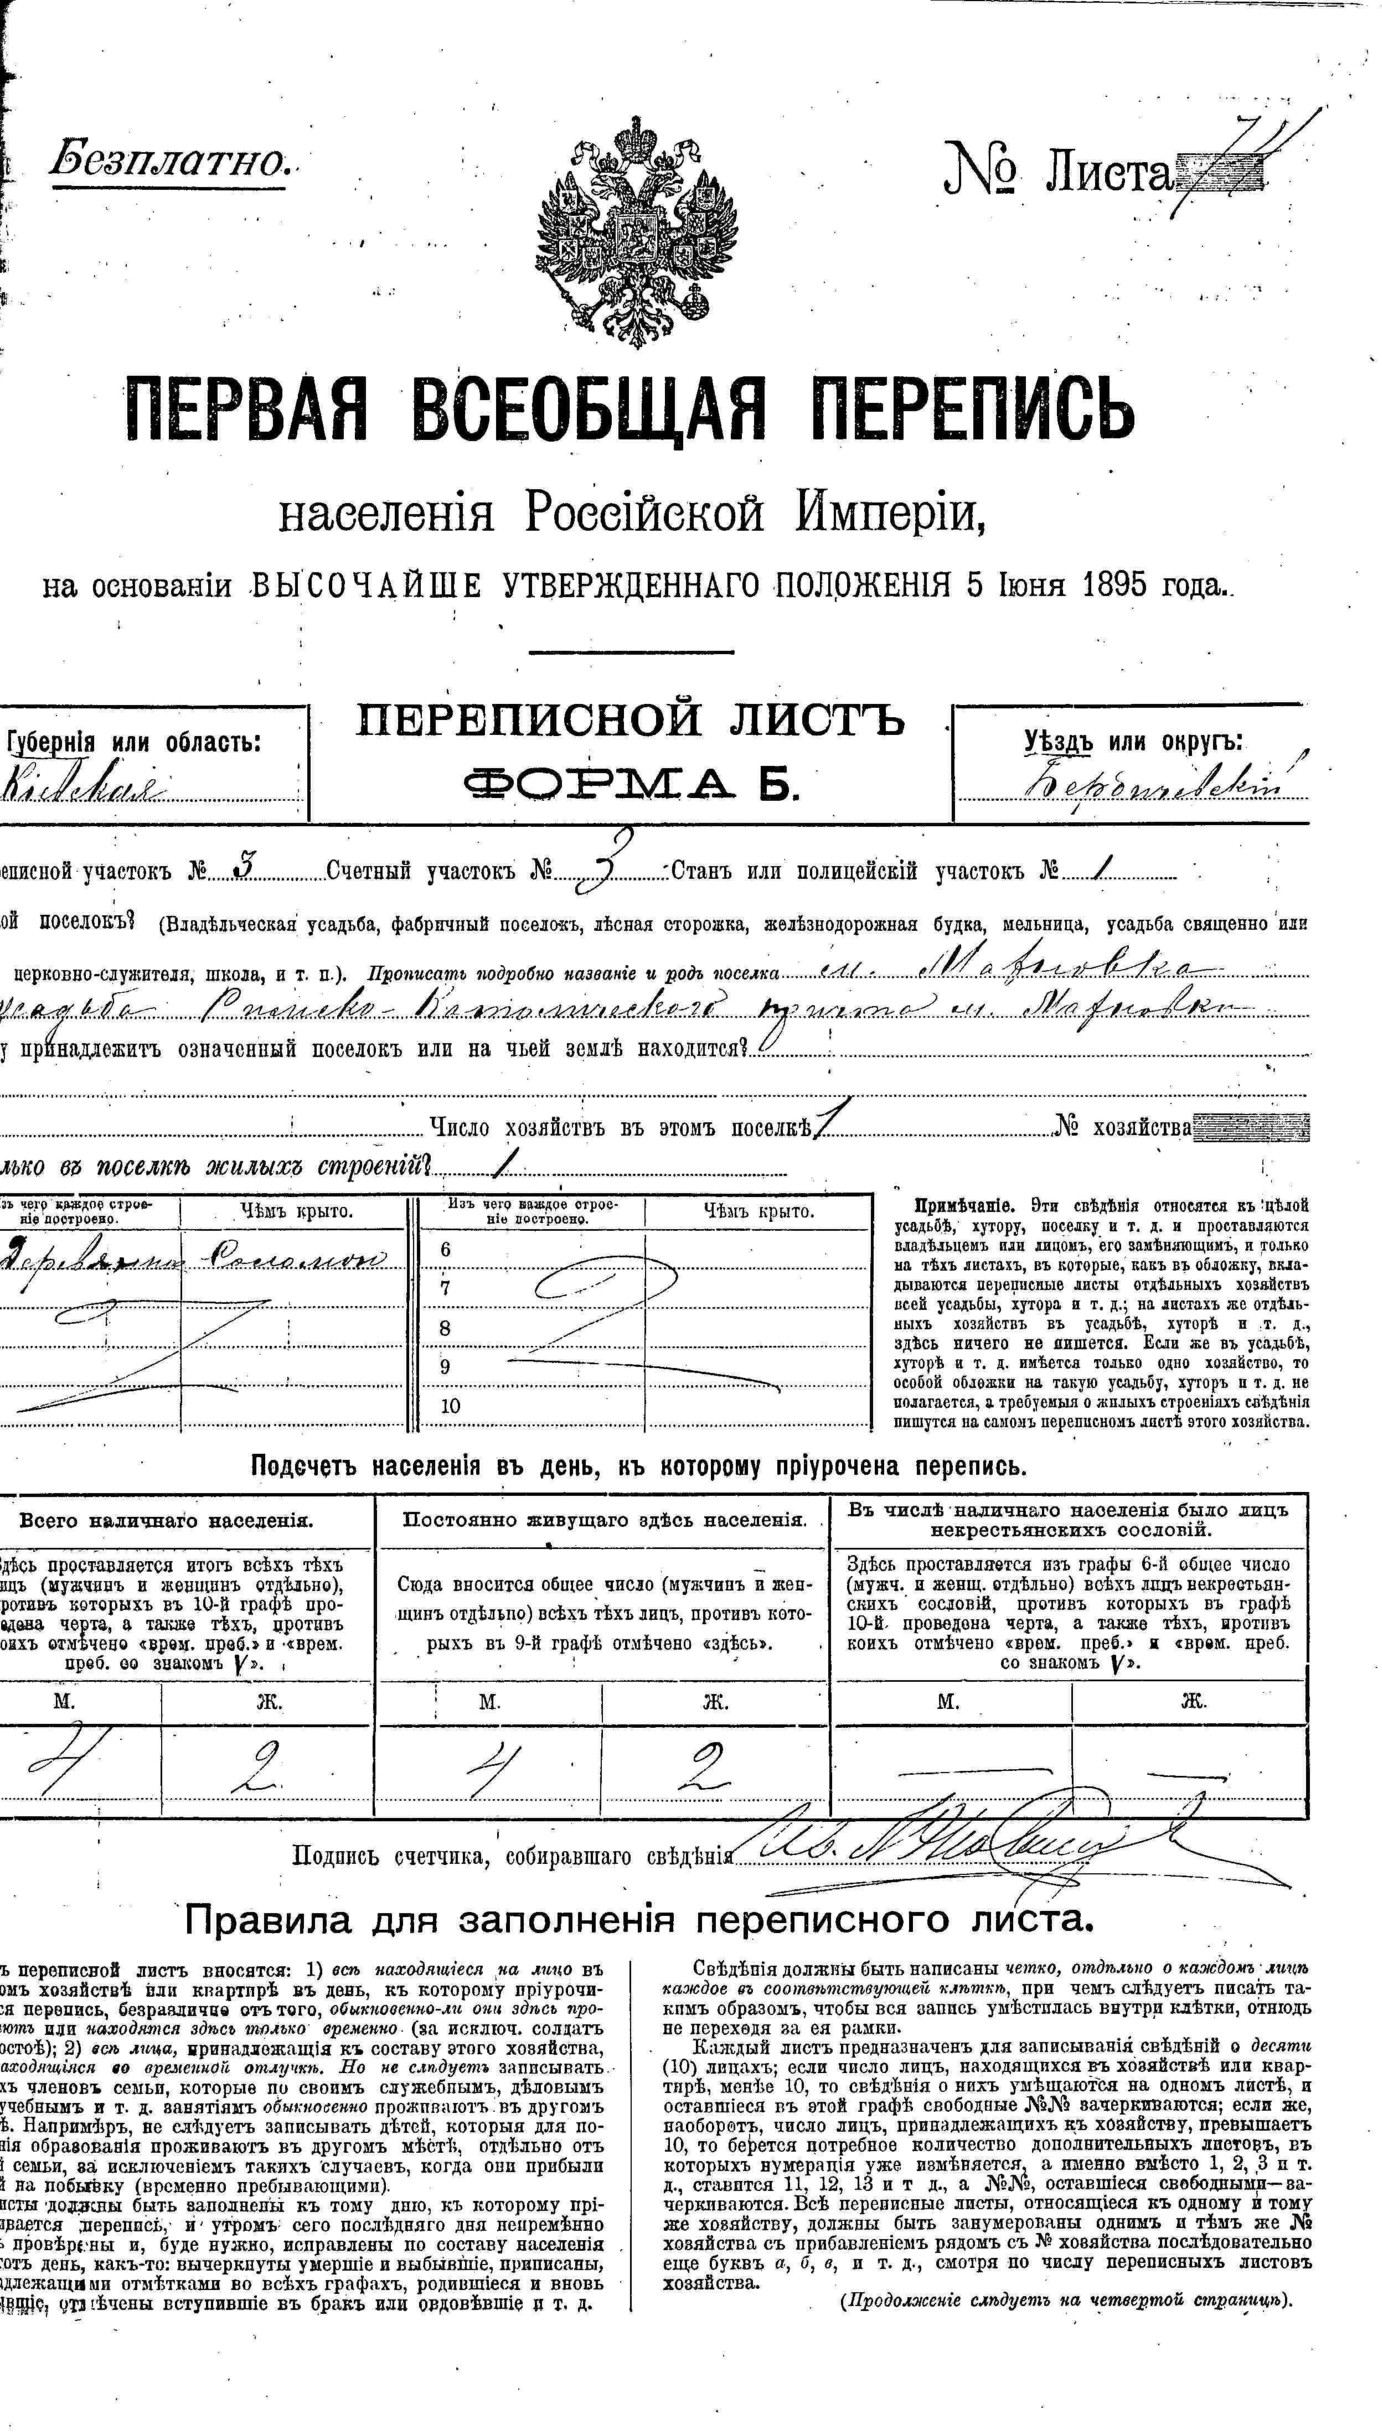 Безплатно.
№ Листа 74
ПЕРВАЯ ВСЕОБЩАЯ ПЕРЕПИСЬ
населенія Россійской Имперіи,
на основаніи ВЫСОЧАЙШЕ УТВЕРЖДЕННАГО ПОЛОЖЕНІЯ 5 Іюня 1895 года.
ПЕРЕПИСНОЙ ЛИСТЪ
ФОРМА Б.
Губернія или область:
Кіевская
Уѣздъ или округъ:
Бердичевскій
еписной участокъ № 3 Счетный участокъ № 3 Станъ или полицейскій участокъ № 1
ой поселокъ? (Владѣльческая усадьба, фабричный поселокъ, лѣсная сторожка, желѣзнодорожная будка, мельница, усадьба священно или
церковно-служителя, школа, и т. п.). Прописать подробно названіе и родъ поселка м. Махновка
усадьба Римско-Католическаго причта м. Махновки
у принадлежитъ означенный поселокъ или на чьей землѣ находится?
Число хозяйствъ въ этомъ поселкѣ 1 № хозяйства
лько въ поселкѣ жилыхъ строеній? 1
зъ чего каждое строе-
ніе построено.
Чѣмъ крыто.
Изъ чего каждое строе-
ніе построено.
Чѣмъ крыто.
Деревянно Соломой
6
7
8
9
10
Примѣчаніе. Эти свѣдѣнія относятся къ цѣлой
усадьбѣ, хутору, поселку и т. д. и проставляются
владѣльцемъ или лицомъ, его замѣняющимъ, и только
на тѣхъ листахъ, въ которые, какъ въ обложку, вкла-
дываются переписные листы отдѣльныхъ хозяйствъ
всей усадьбы, хутора и т. д.; на листахъ же отдѣль-
ныхъ хозяйствъ въ усадьбѣ, хуторѣ и т. д.,
здѣсь ничего не пишется. Если же въ усадьбѣ,
хуторѣ и т. д. имѣется только одно хозяйство, то
особой обложки на такую усадьбу, хуторъ и т. д. не
полагается, а требуемыя о жилыхъ строеніяхъ свѣдѣнія
пишутся на самомъ переписномъ листѣ этого хозяйства.
Подсчетъ населенія въ день, къ которому пріурочена перепись.
Всего наличнаго населенія.
здѣсь проставляется итогъ всѣхъ тѣхъ
ицъ (мужчинъ и женщинъ отдѣльно),
ротивъ которыхъ въ 10-й графѣ про-
едена черта, а также тѣхъ, противъ
оихъ отмѣчено «врем. преб.» и «врем.
преб. со знакомъ V».
Постоянно живущаго здѣсь населенія.
Сюда вносится общее число (мужчинъ и жен-
щинъ отдѣльно) всѣхъ тѣхъ лицъ, противъ кото-
рыхъ въ 9-й графѣ отмѣчено «здѣсь».
Въ числѣ наличнаго населенія было лицъ
некрестьянскихъ сословій.
Здѣсь проставляется изъ графы 6-й общее число
(мужч. и женщ. отдѣльно) всѣхъ лицъ некрестьян-
скихъ сословій, противъ которыхъ въ графѣ
10-й проведена черта, а также тѣхъ, противъ
коихъ отмѣчено «врем. преб.» и «врем. преб.
со знакомъ V».
М. Ж. М. Ж. М. Ж.
4 2 4 2 — —
Подпись счетчика, собиравшаго свѣдѣнія
Правила для заполненія переписного листа.
ъ переписной листъ вносятся: 1) всѣ находящіеся на лицо въ
омъ хозяйствѣ или квартирѣ въ день, къ которому пріурочи-
ся перепись, безразлично отъ того, обыкновенно-ли они здѣсь про-
ютъ или находятся здѣсь только временно (за исключ. солдатъ
остоѣ); 2) всѣ лица, принадлежащія къ составу этого хозяйства,
аходящіяся во временной отлучкѣ. Но не слѣдуетъ записывать
хъ членовъ семьи, которые по своимъ служебнымъ, дѣловымъ
учебнымъ и т. д. занятіямъ обыкновенно проживаютъ въ другомъ
ѣ. Напримѣръ, не слѣдуетъ записывать дѣтей, которыя для по-
нія образованія проживаютъ въ другомъ мѣстѣ, отдѣльно отъ
й семьи, за исключеніемъ такихъ случаевъ, когда они прибыли
й на побывку (временно пребывающими).
исты должны быть заполнены къ тому дню, къ которому прі-
ивается перепись, и утромъ сего послѣдняго дня непремѣнно
ь провѣрены и, буде нужно, исправлены по составу населенія
тотъ день, какъ-то: вычеркнуты умершіе и выбывшіе, приписаны,
длежащими отмѣтками во всѣхъ графахъ, родившіеся и вновь
ывшіе, отмѣчены вступившіе въ бракъ или овдовѣвшіе и т. д.
Свѣдѣнія должны быть написаны четко, отдѣльно о каждомъ лицѣ
каждое въ соотвѣтствующей клѣткѣ, при чемъ слѣдуетъ писать та-
кимъ образомъ, чтобы вся запись умѣстилась внутри клѣтки, отнюдь
не переходя за ея рамки.
Каждый листъ предназначенъ для записыванія свѣдѣній о десяти
(10) лицахъ; если число лицъ, находящихся въ хозяйствѣ или квар-
тирѣ, менѣе 10, то свѣдѣнія о нихъ умѣщаются на одномъ листѣ, и
оставшіеся въ этой графѣ свободные №№ зачеркиваются; если же,
наоборотъ, число лицъ, принадлежащихъ къ хозяйству, превышаетъ
10, то берется потребное количество дополнительныхъ листовъ, въ
которыхъ нумерація уже измѣняется, а именно вмѣсто 1, 2, 3 и т.
д., ставится 11, 12, 13 и т д., а №№, оставшіеся свободными—за-
черкиваются. Всѣ переписные листы, относящіеся къ одному и тому
же хозяйству, должны быть занумерованы однимъ и тѣмъ же №
хозяйства съ прибавленіемъ рядомъ съ № хозяйства послѣдовательно
еще буквъ а, б, в, и т. д., смотря по числу переписныхъ листовъ
хозяйства.
(Продолженіе слѣдуетъ на четвертой страницѣ).